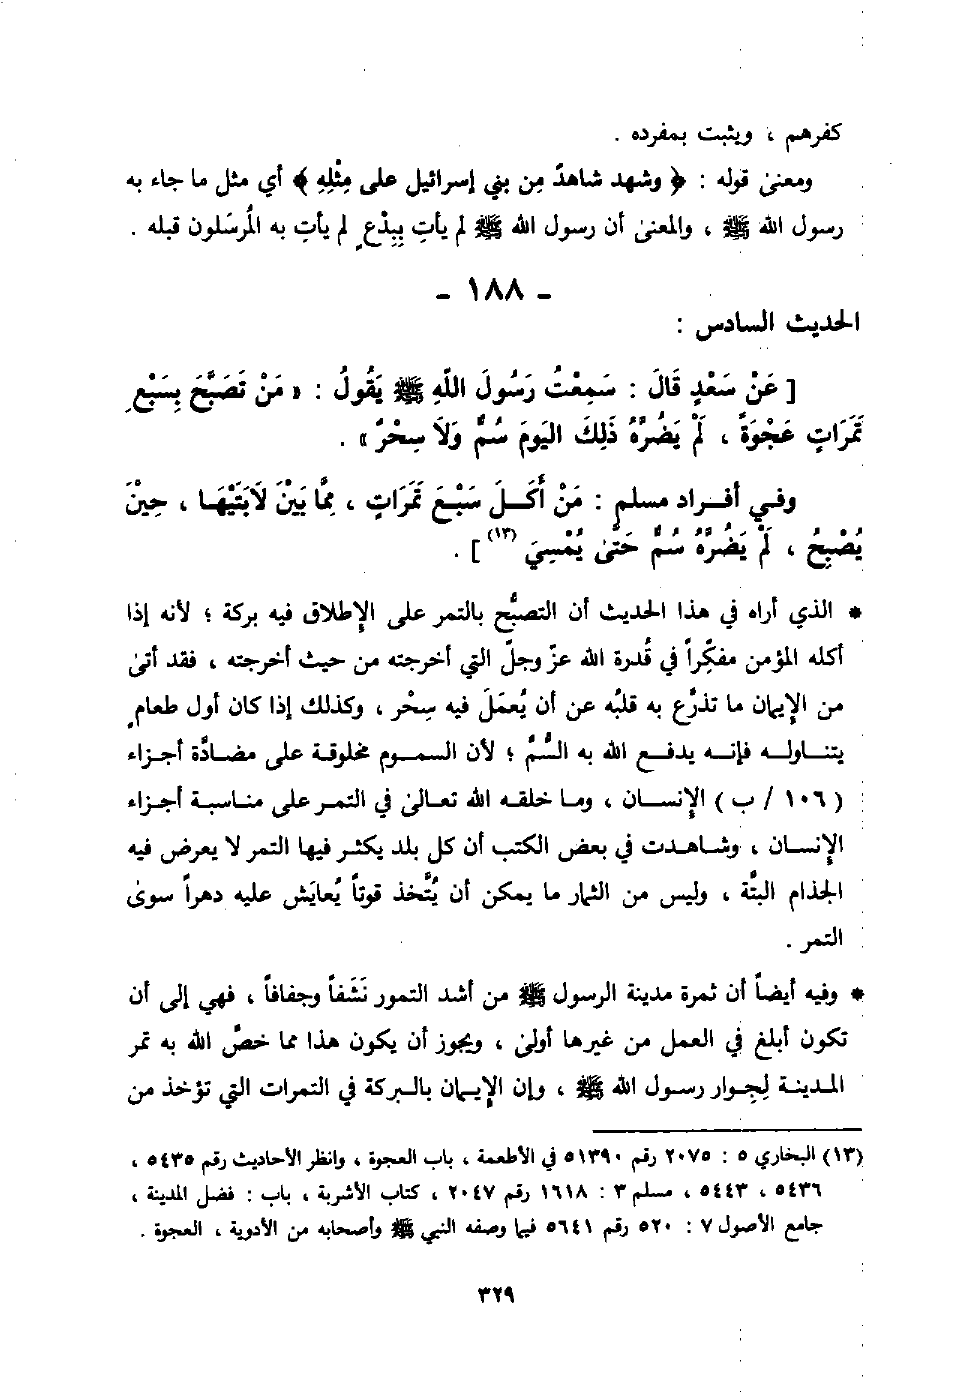 كفرهم ، ويثبت بمفرده .
ومعنى قوله : ﴿ وشهد شاهدٌ مِن بني إسرائيل على مِثْلِهِ ﴾ أي مثل ما جاء به
رسول الله ﷺ ، والمعنى أن رسول الله ﷺ لم يأتِ بِبِدْعٍ لم يأتِ به المُرسَلون قبله .
- ١٨٨ -
الحديث السادس :
[ عَنْ سَعْدٍ قَالَ : سَمِعْتُ رَسُولَ اللَّهِ ﷺ يَقُولُ : « مَنْ تَصَبَّحَ بِسَبْعِ
تَمَرَاتٍ عَجْوَةً ، لَمْ يَضُرَّهُ ذَلِكَ اليَومَ سُمٌّ وَلَا سِحْرٌ » .
وفي أفراد مسلم : مَنْ أَكَلَ سَبْعَ تَمَرَاتٍ ، مِمَّا بَيْنَ لَابَتَيْهَا ، حِيْنَ
يُصْبِحُ ، لَمْ يَضُرَّهُ سُمٌّ حَتَّى يُمْسِيَ (١٣) ] .
* الذي أراه في هذا الحديث أن التصبُّح بالتمر على الإطلاق فيه بركة ؛ لأنه إذا
أكله المؤمن مفكِّراً في قُدرة الله عزّ وجلّ التي أخرجته من حيث أخرجته ، فقد أتى
من الإيمان ما تذرَّع به قلبُه عن أن يُعمَلَ فيه سِحْر ، وكذلك إذا كان أول طعامٍ
يتناوله فإنه يدفع الله به السُّمَّ ؛ لأن السموم مخلوقة على مضادَّة أجزاء
( ١٠٦ / ب ) الإنسان ، وما خلقه الله تعالى في التمر على مناسبة أجزاء
الإنسان ، وشاهدت في بعض الكتب أن كل بلد يكثر فيها التمر لا يعرض فيه
الجذام البتَّة ، وليس من الثمار ما يمكن أن يُتَّخذ قوتاً يُعايَش عليه دهراً سوى
التمر .
* وفيه أيضاً أن ثمرة مدينة الرسول ﷺ من أشد التمور نَشَفاً وجفافاً ، فهي إلى أن
تكون أبلغ في العمل من غيرها أولى ، ويجوز أن يكون هذا مما خصَّ الله به تمر
المدينة لِجِوار رسول الله ﷺ ، وإن الإيمان بالبركة في التمرات التي تؤخذ من
(١٣) البخاري ٥ : ٢٠٧٥ رقم ٥١٣٩٠ في الأطعمة ، باب العجوة ، وانظر الأحاديث رقم ٥٤٣٥ ،
٥٤٣٦ ، ٥٤٤٣ ، مسلم ٣ : ١٦١٨ رقم ٢٠٤٧ ، كتاب الأشربة ، باب : فضل المدينة ،
جامع الأصول ٧ : ٥٢٠ رقم ٥٦٤١ فيما وصفه النبي ﷺ وأصحابه من الأدوية ، العجوة .
٣٢٩